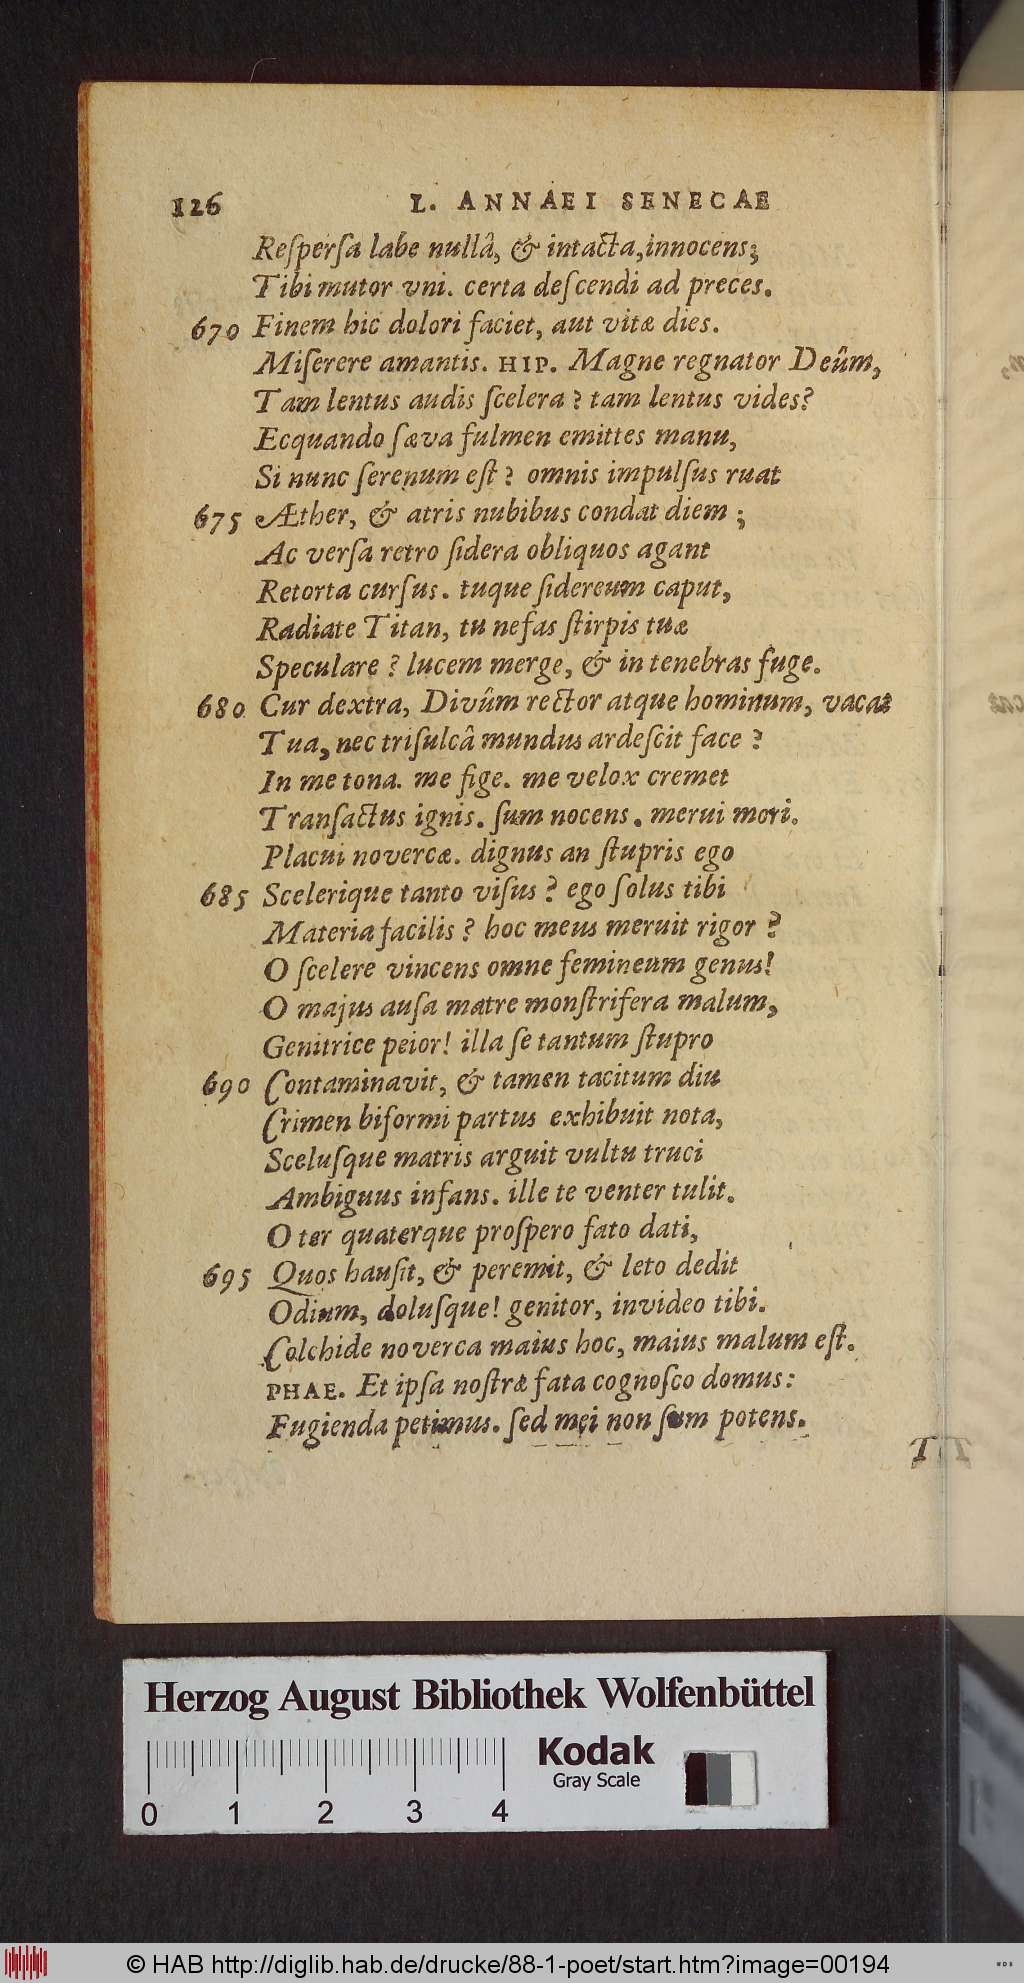 126 L. ANNAEI SENECAE
Reſperſa labe nullâ, & intacta, innocens;
Tibi mutor vni. certa deſcendi ad preces.
670 Finem hic dolori faciet, aut vitæ dies.
Miſerere amantis. HIP. Magne regnator Deûm,
Tam lentus audis ſcelera? tam lentus vides?
Ecquando ſæva fulmen emittes manu,
Si nunc ſerenum eſt? omnis impulſus ruat
675 Æther, & atris nubibus condat diem;
Ac verſa retro ſidera obliquos agant
Retorta curſus. tuque ſidereum caput,
Radiate Titan, tu nefas ſtirpis tuæ
Speculare? lucem merge, & in tenebras fuge.
680 Cur dextra, Divûm rector atque hominum, vacat
Tua, nec triſulcâ mundus ardeſcit face?
In me tona. me fige. me velox cremet
Tranſactus ignis. ſum nocens. merui mori.
Placui novercæ. dignus an ſtupris ego
685 Scelerique tanto viſus? ego ſolus tibi
Materia facilis? hoc meus meruit rigor?
O ſcelere vincens omne femineum genus!
O majus auſa matre monſtrifera malum,
Genitrice peior! illa ſe tantum ſtupro
690 Contaminavit, & tamen tacitum diu
Crimen biformi partus exhibuit nota,
Sceluſque matris arguit vultu truci
Ambiguus infans. ille te venter tulit.
O ter quaterque proſpero fato dati,
695 Quos hauſit, & peremit, & leto dedit
Odium, doluſque! genitor, invideo tibi.
Colchide noverca maius hoc, maius malum eſt.
PHAE. Et ipſa noſtræ fata cognoſco domus:
Fugienda petimus. ſed mei non ſum potens.
Herzog August Bibliothek Wolfenbüttel
Kodak
Gray Scale
0 1 2 3 4
© HAB http://diglib.hab.de/drucke/88-1-poet/start.htm?image=00194